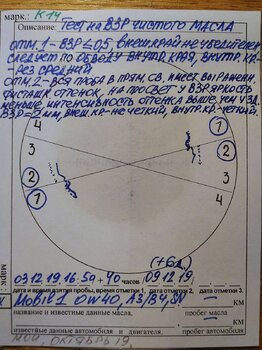 марк.: К-14
Описание: Тест на ВЗР чистого масла
отм.1-ВЗР≤0,5, внеш.край не увеличен
следует по обводу внутр. края, внутр. кр-
- рез средний
отм.2-вся проба в прям. св. имеет выражен.
чистый оттенок, на просвет у ВЗР яркость
меньше, интенсивность оттенка выше, чем у
ВЗР=2мм, внеш.кр-нечеткий, внутр.кр-четкий.
1
4
4
3
3
2
2
1
(+6д.)
03.12.19 16-50+40 09.12.19
часов
дата и время взятия пробы, время отметки 1. дата отметки 2. дата отметки 3.
Mobil 1 0w40, A3/B4, SN — КМ
название и известные данные масла. пробег масла
— — КМ
известные данные автомобиля и двигателя. пробег автомобиля
МОЙ, ОКТЯБРЬ 19.
МАРК